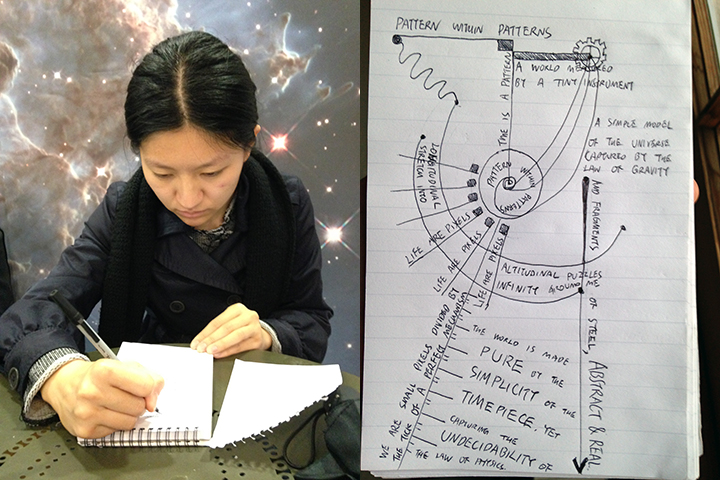 PATTERN WITHIN PATTERNS
TIDE IS A PATTERN
A WORLD MEASURED
BY A TINY INSTRUMENT
A SIMPLE MODEL
OF THE UNIVERSE
CAPTURED BY THE
LAW OF GRAVITY
PATTERN WITHIN PATTERNS
LIFE ARE PIXELS
LIFE ARE PIXELS
LIFE ARE PIXELS
ALTITUDINAL PUZZLES
INFINITY GROUND ME
AND FRAGMENTS OF STEEL, ABSTRACT & REAL.
WE ARE SMALL PIXELS DIVIDED BY
THE TICK OF A PERFECT MECHANISM
THE WORLD IS MADE
PURE BY THE
SIMPLICITY OF THE
TIMEPIECE. YET
CAPTURING THE
UNDECIDABILITY OF
THE LAW OF PHYSICS